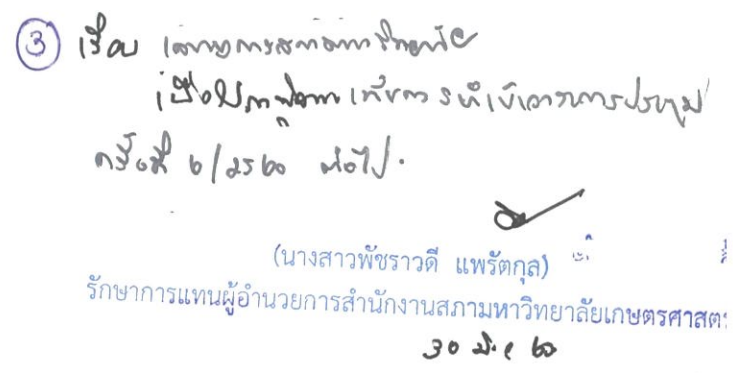 ③ เรียน เลขาธิการสภามหาวิทยาลัย
เพื่อโปรดพิจารณา เห็นควรนำเข้าวาระการประชุม
ครั้งที่ ๖/๒๕๖๐ ต่อไป.
(นางสาวพัชราวดี แพรัตกุล)
รักษาการแทนผู้อำนวยการสำนักงานสภามหาวิทยาลัยเกษตรศาสตร
30 มี.ค ๖๐